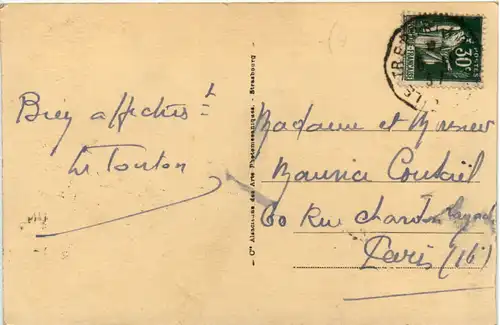 Bien affectᵗ
Le Tonton
Cⁱᵉ Alsacienne des Arts Photomécaniques - Strasbourg
POSTES
30ᶜ
Madame et Monsieur
Maurice
60 Rue Chardon Lagache
Paris (16ᵉ)